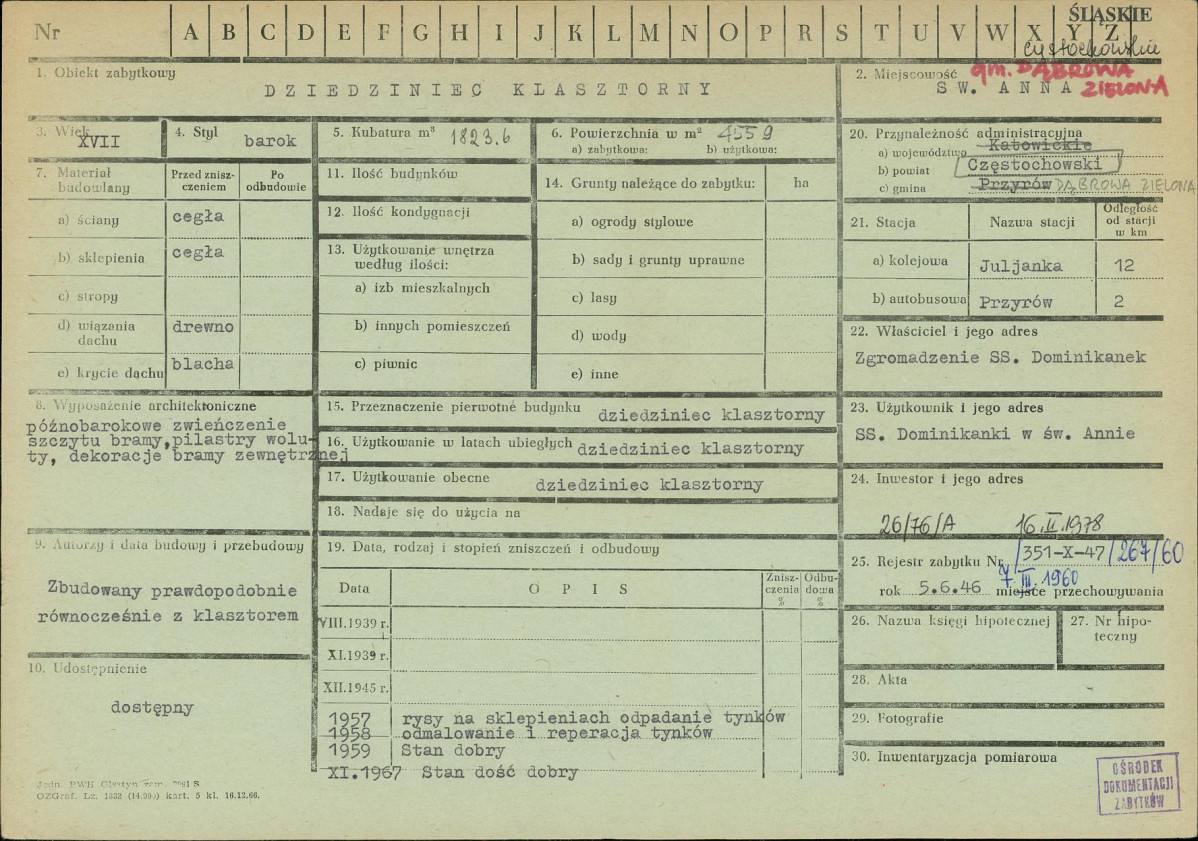 Nr A B C D E F G H I J K L M N O P R S T U V W X Y Z
ŚLĄSKIE
częstochowskie
gm. DĄBROWA
ZIELONA
1. Obiekt zabytkowy
DZIEDZINIEC KLASZTORNY
2. Miejscowość
SW. ANNA
3. Wiek
XVII
4. Styl
barok
5. Kubatura m³ 1823.6
6. Powierzchnia w m² 4559
a) zabytkowa: b) użytkowa:
7. Materiał budowlany
Przed zniszczeniem
Po odbudowie
a) ściany cegła
b) sklepienia cegła
c) stropy
d) wiązania dachu drewno
e) krycie dachu blacha
8. Wyposażenie architektoniczne
późnobarokowe zwieńczenie
szczytu bramy,pilastry wolu-
ty, dekoracje bramy zewnętrznej
9. Autorzy i data budowy i przebudowy
Zbudowany prawdopodobnie
równocześnie z klasztorem
10. Udostępnienie
dostępny
11. Ilość budynków
12. Ilość kondygnacji
13. Użytkowanie wnętrza
według ilości:
a) izb mieszkalnych
b) innych pomieszczeń
c) piwnic
14. Grunty należące do zabytku: ha
a) ogrody stylowe
b) sady i grunty uprawne
c) lasy
d) wody
e) inne
15. Przeznaczenie pierwotne budynku dziedziniec klasztorny
16. Użytkowanie w latach ubiegłych dziedziniec klasztorny
17. Użytkowanie obecne dziedziniec klasztorny
18. Nadaje się do użycia na
19. Data, rodzaj i stopień zniszczeń i odbudowy
Data OPIS Zniszczenia % Odbudowa %
VIII.1939 r.
XI.1939 r.
XII.1945 r.
1957 rysy na sklepieniach odpadanie tynków
1958 odmalowanie i reperacja tynków
1959 Stan dobry
XI.1967 Stan dość dobry
20. Przynależność administracyjna
a) województwo Katowickie
b) powiat Częstochowski
c) gmina Przyrów DĄBROWA ZIELONA
21. Stacja Nazwa stacji Odległość od stacji w km
a) kolejowa Juljanka 12
b) autobusowa Przyrów 2
22. Właściciel i jego adres
Zgromadzenie SS. Dominikanek
23. Użytkownik i jego adres
SS. Dominikanki w św. Annie
24. Inwestor i jego adres
26/76/A 16.II.1978
25. Rejestr zabytku Nr /351-X-47/267/60
7.III.1960
rok 5.6.46 miejsce przechowywania
26. Nazwa księgi hipotecznej
27. Nr hipoteczny
28. Akta
29. Fotografie
30. Inwentaryzacja pomiarowa
OŚRODEK
DOKUMENTACJI
ZABYTKÓW
OZGraf. Lz. 1332 kart. 5 kl. 16.12.66.